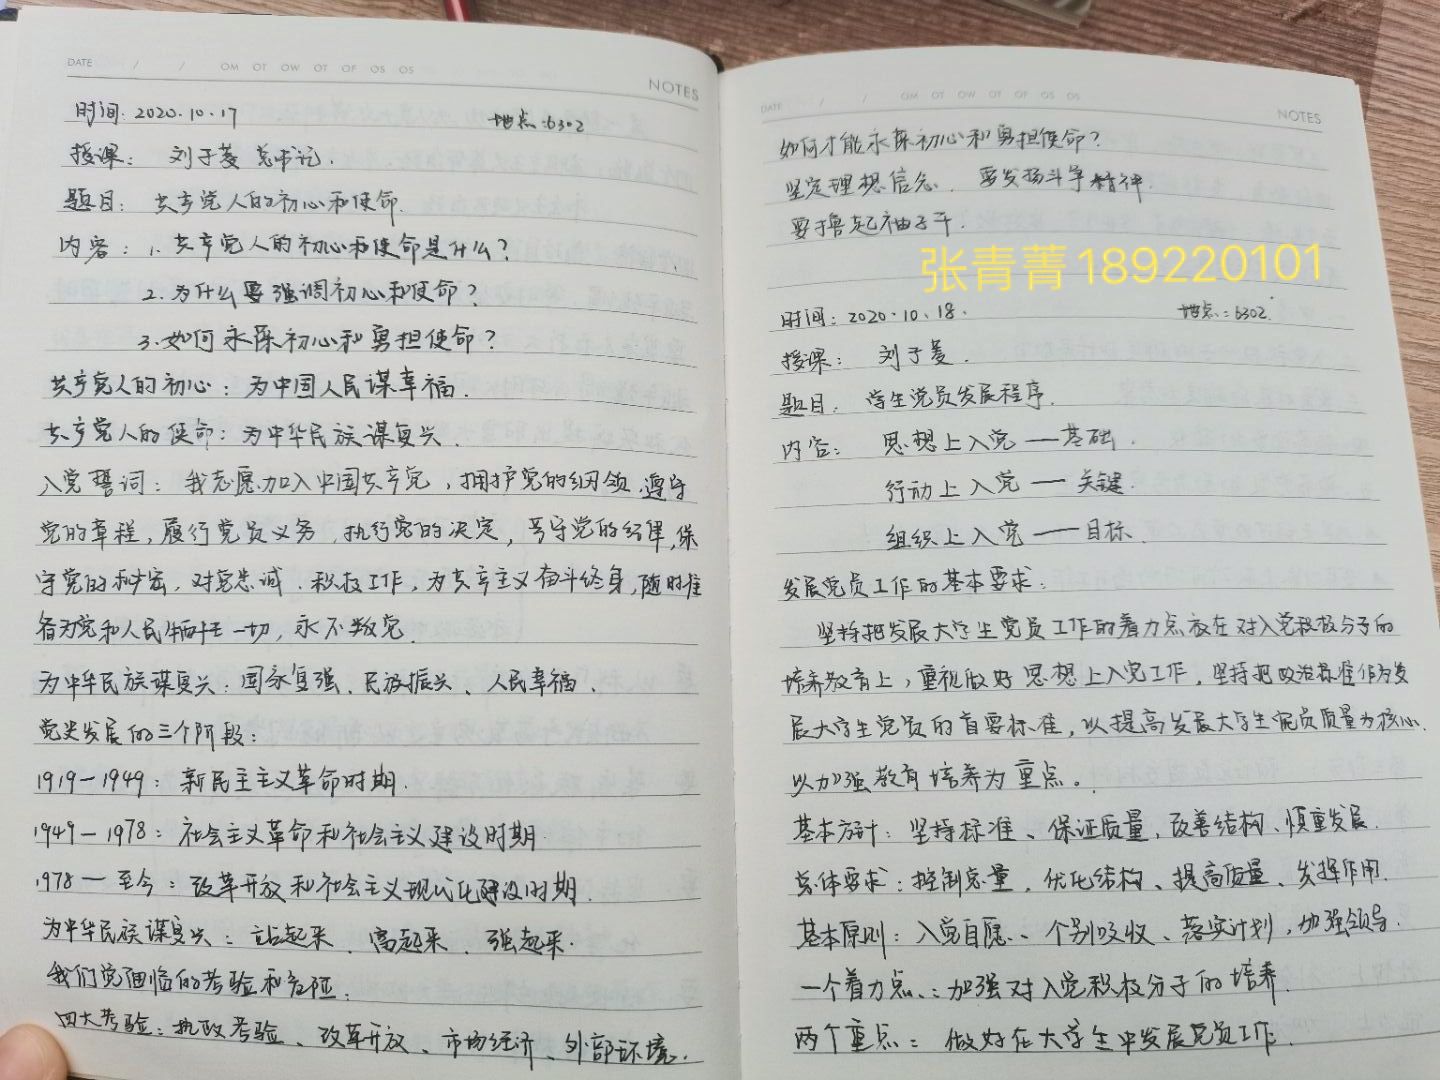 DATE / / OM OT OW OT OF OS OS
NOTES
时间: 2020.10.17 地点:6302
授课: 刘于菱 总书记.
题目: 共产党人的初心和使命.
内容: 1. 共产党人的初心和使命是什么?
2. 为什么要强调初心和使命?
3. 如何永葆初心和勇担使命?
共产党人的初心: 为中国人民谋幸福.
共产党人的使命: 为中华民族谋复兴.
入党誓词: 我志愿加入中国共产党, 拥护党的纲领, 遵守
党的章程, 履行党员义务, 执行党的决定, 严守党的纪律, 保
守党的秘密, 对党忠诚, 积极工作, 为共产主义奋斗终身, 随时准
备为党和人民牺牲一切, 永不叛党.
为中华民族谋复兴: 国家富强、民族振兴、人民幸福.
党史发展的三个阶段:
1919-1949: 新民主主义革命时期.
1949-1978: 社会主义革命和社会主义建设时期
1978-至今: 改革开放和社会主义现代化建设时期.
为中华民族谋复兴: 站起来、富起来、强起来.
我们党面临的考验和危险:
四大考验: 执政考验、改革开放、市场经济、外部环境.
DATE / / OM OT OW OT OF OS OS
NOTES
如何才能永葆初心和勇担使命?
坚定理想信念、要发扬斗争精神.
要撸起袖子干.
张青菁189220101
时间: 2020.10.18. 地点:6302.
授课: 刘于菱.
题目: 学生党员发展程序.
内容: 思想上入党——基础.
行动上入党——关键.
组织上入党——目标.
发展党员工作的基本要求:
坚持把发展大学生党员工作的着力点放在对入党积极分子的
培养教育上, 重视做好思想上入党工作, 坚持把政治标准作为发
展大学生党员的首要标准, 以提高发展大学生党员质量为核心.
以加强教育培养为重点.
基本方针: 坚持标准、保证质量, 改善结构、慎重发展.
总体要求: 控制总量, 优化结构、提高质量、发挥作用.
基本原则: 入党自愿、个别吸收、落实计划, 加强领导.
一个着力点: 加强对入党积极分子的培养.
两个重点: 做好在大学生中发展党员工作.